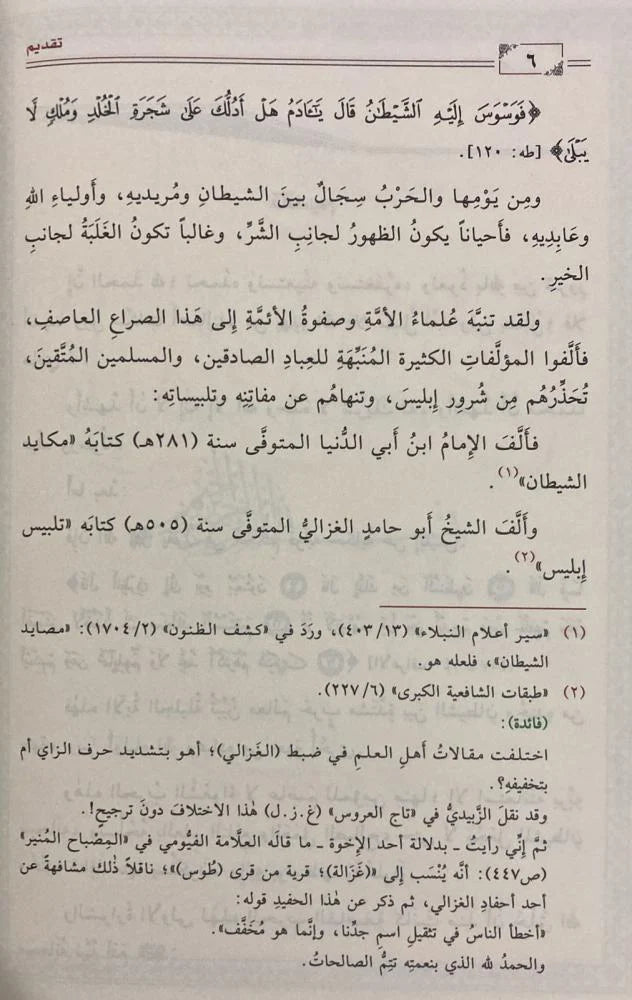 تقديم
٦
﴿فَوَسْوَسَ إِلَيْهِ الشَّيْطَٰنُ قَالَ يَٰٓـَٔادَمُ هَلْ أَدُلُّكَ عَلَىٰ شَجَرَةِ الْخُلْدِ وَمُلْكٍ لَّا
يَبْلَىٰ﴾ [طه: ١٢٠].
ومِن يَوْمِها والحَرْبُ سِجَالٌ بينَ الشيطانِ ومُريديهِ، وأَولياءِ اللهِ
وعَابِدِيهِ، فأَحياناً يكونُ الظهورُ لجانِبِ الشَّرِّ، وغالباً تكونُ الغَلَبَةُ لجانبِ
الخيرِ.
ولقد تنبَّهَ عُلماءُ الأمَّةِ وصفوةُ الأئمَّةِ إِلى هَذا الصراعِ العاصفِ،
فأَلَّفوا المؤلَّفاتِ الكثيرة المُنَبِّهَةِ للعِبادِ الصادقين، والمسلمين المُتَّقينَ،
تُحَذِّرُهُم مِن شُرورِ إِبليسَ، وتنهاهُم عن مفاتِنِه وتلبيساتِه:
فأَلَّفَ الإِمامُ ابنُ أَبي الدُّنيا المتوفَّى سنة (٢٨١هـ) كتابَهُ «مكايد
الشيطان»(١).
وأَلَّفَ الشيخُ أَبو حامدٍ الغزاليُّ المتوفَّى سنة (٥٠٥هـ) كتابَه «تلبيس
إِبليس»(٢).
(١) «سير أعلام النبلاء» (٤٠٣/١٣)، ورَدَ في «كشف الظنون» (١٧٠٤/٢): «مصايد
الشيطان»، فلعله هو.
(٢) «طبقات الشافعية الكبرى» (٢٢٧/٦).
(فائدة):
اختلفت مقالاتُ أَهلِ العلمِ في ضبط (الغَزالي)؛ أهو بتشديد حرف الزاي أم
بتخفيفِه؟.
وقد نقلَ الزَّبيديُّ في «تاج العروس» (غ.ز.ل) هٰذا الاختلافَ دونَ ترجيحٍ!.
ثمَّ إِنِّي رأيتُ ـ بدلالة أحد الإخوة ـ ما قالَه العلَّامة الفيُّومي في «المِصْباح المُنير»
(ص٤٤٧): أَنَّه يُنْسَب إِلى «(غَزَالة)؛ قرية من قرى (طُوس)»؛ ناقلاً ذٰلك مشافهةً عن
أحد أحفادِ الغزالي، ثم ذكر عن هٰذا الحفيدِ قوله:
«أخطأ الناسُ في تثقيلِ اسمِ جدِّنا، وإنَّما هو مُخَفَّف».
والحمدُ لله الذي بنعمتِه تتِمُّ الصالحاتُ.